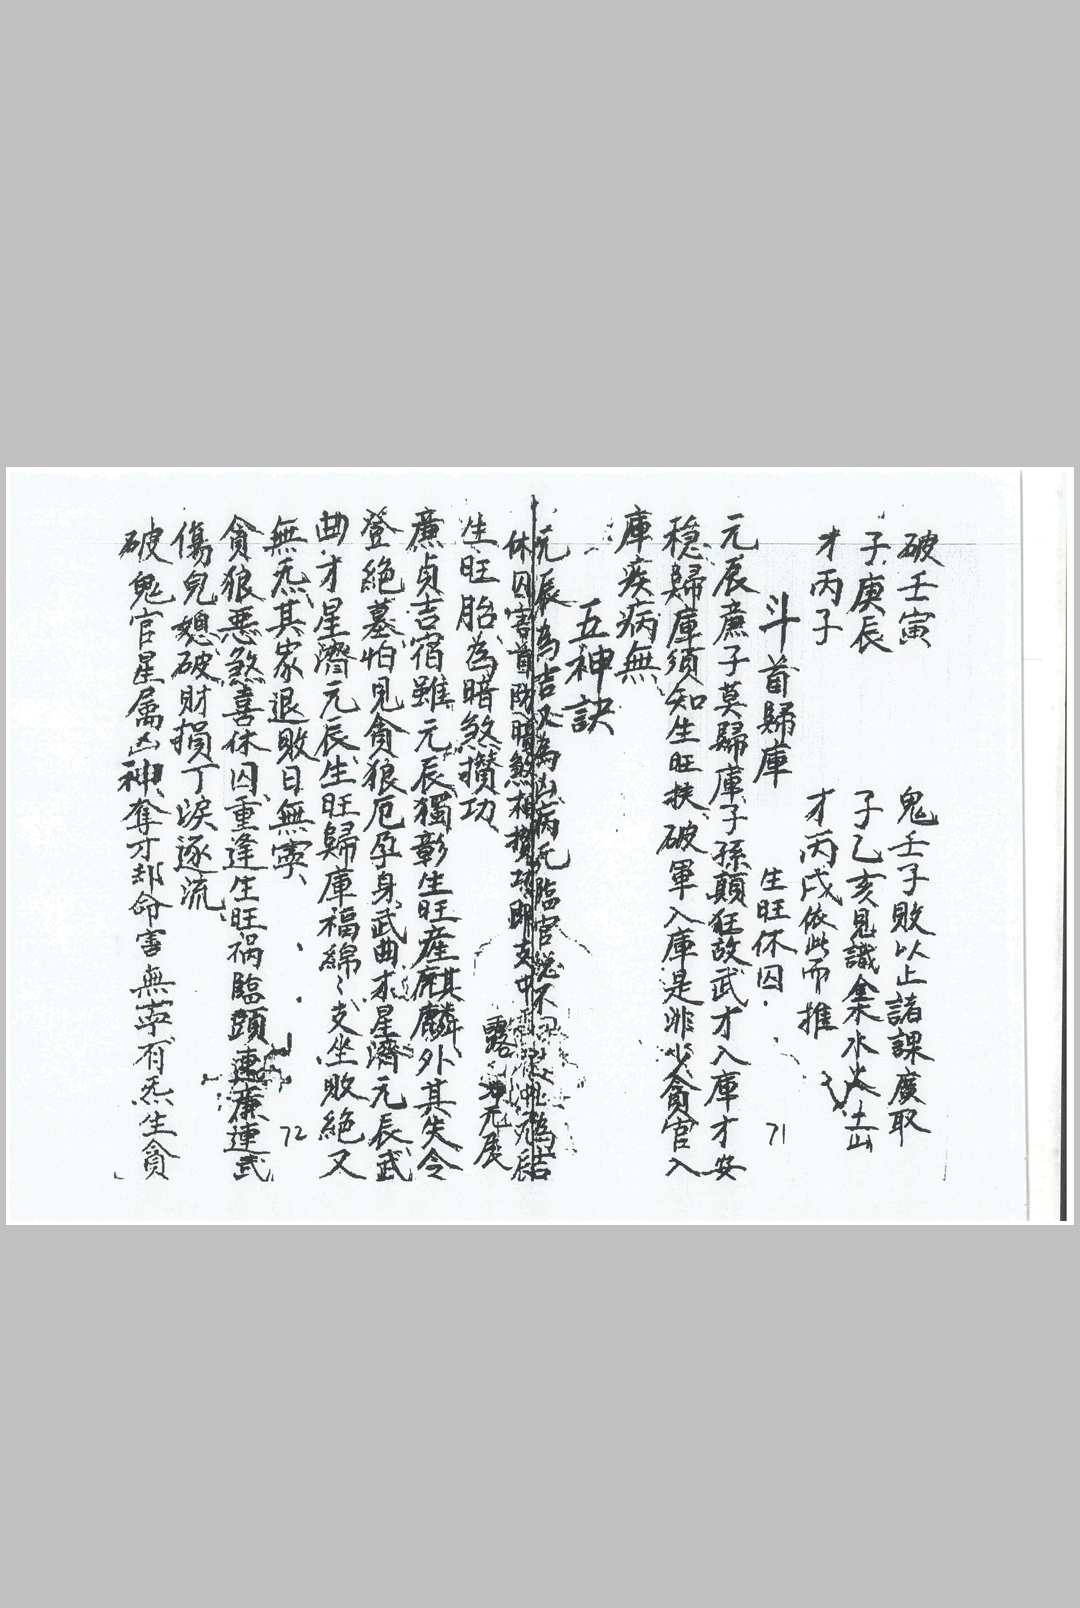 破壬寅　鬼壬子敗以上諸課廣取
子庚辰　子乙亥見識金木水火土
才丙子　才丙戌依此而推
斗首歸庫　生旺休囚
元辰廉子莫歸庫子孫顛狂故武才入庫才安
穩歸庫須知生旺挨破軍入庫是非少貪官入
庫疾病無
五神訣
元辰為吉又為凶病死臨官
休囚害首防暗煞相攢功
生旺胎為暗煞攢功
露元辰
廉貞吉宿雖元辰獨彰生旺産麒麟外其失令
登絕墓怕見貪狼厄孕身武曲才星濟元辰武
曲才星濟元辰生旺歸庫福綿〻支坐敗絕又
無炁其家退敗日無寧
貪狼惡煞喜休囚重逢生旺禍臨頭連廉連武
傷兒媳破財損丁淚逐流
破鬼官星屬凶神奪才刼命害無寧有炁生貪
71
72